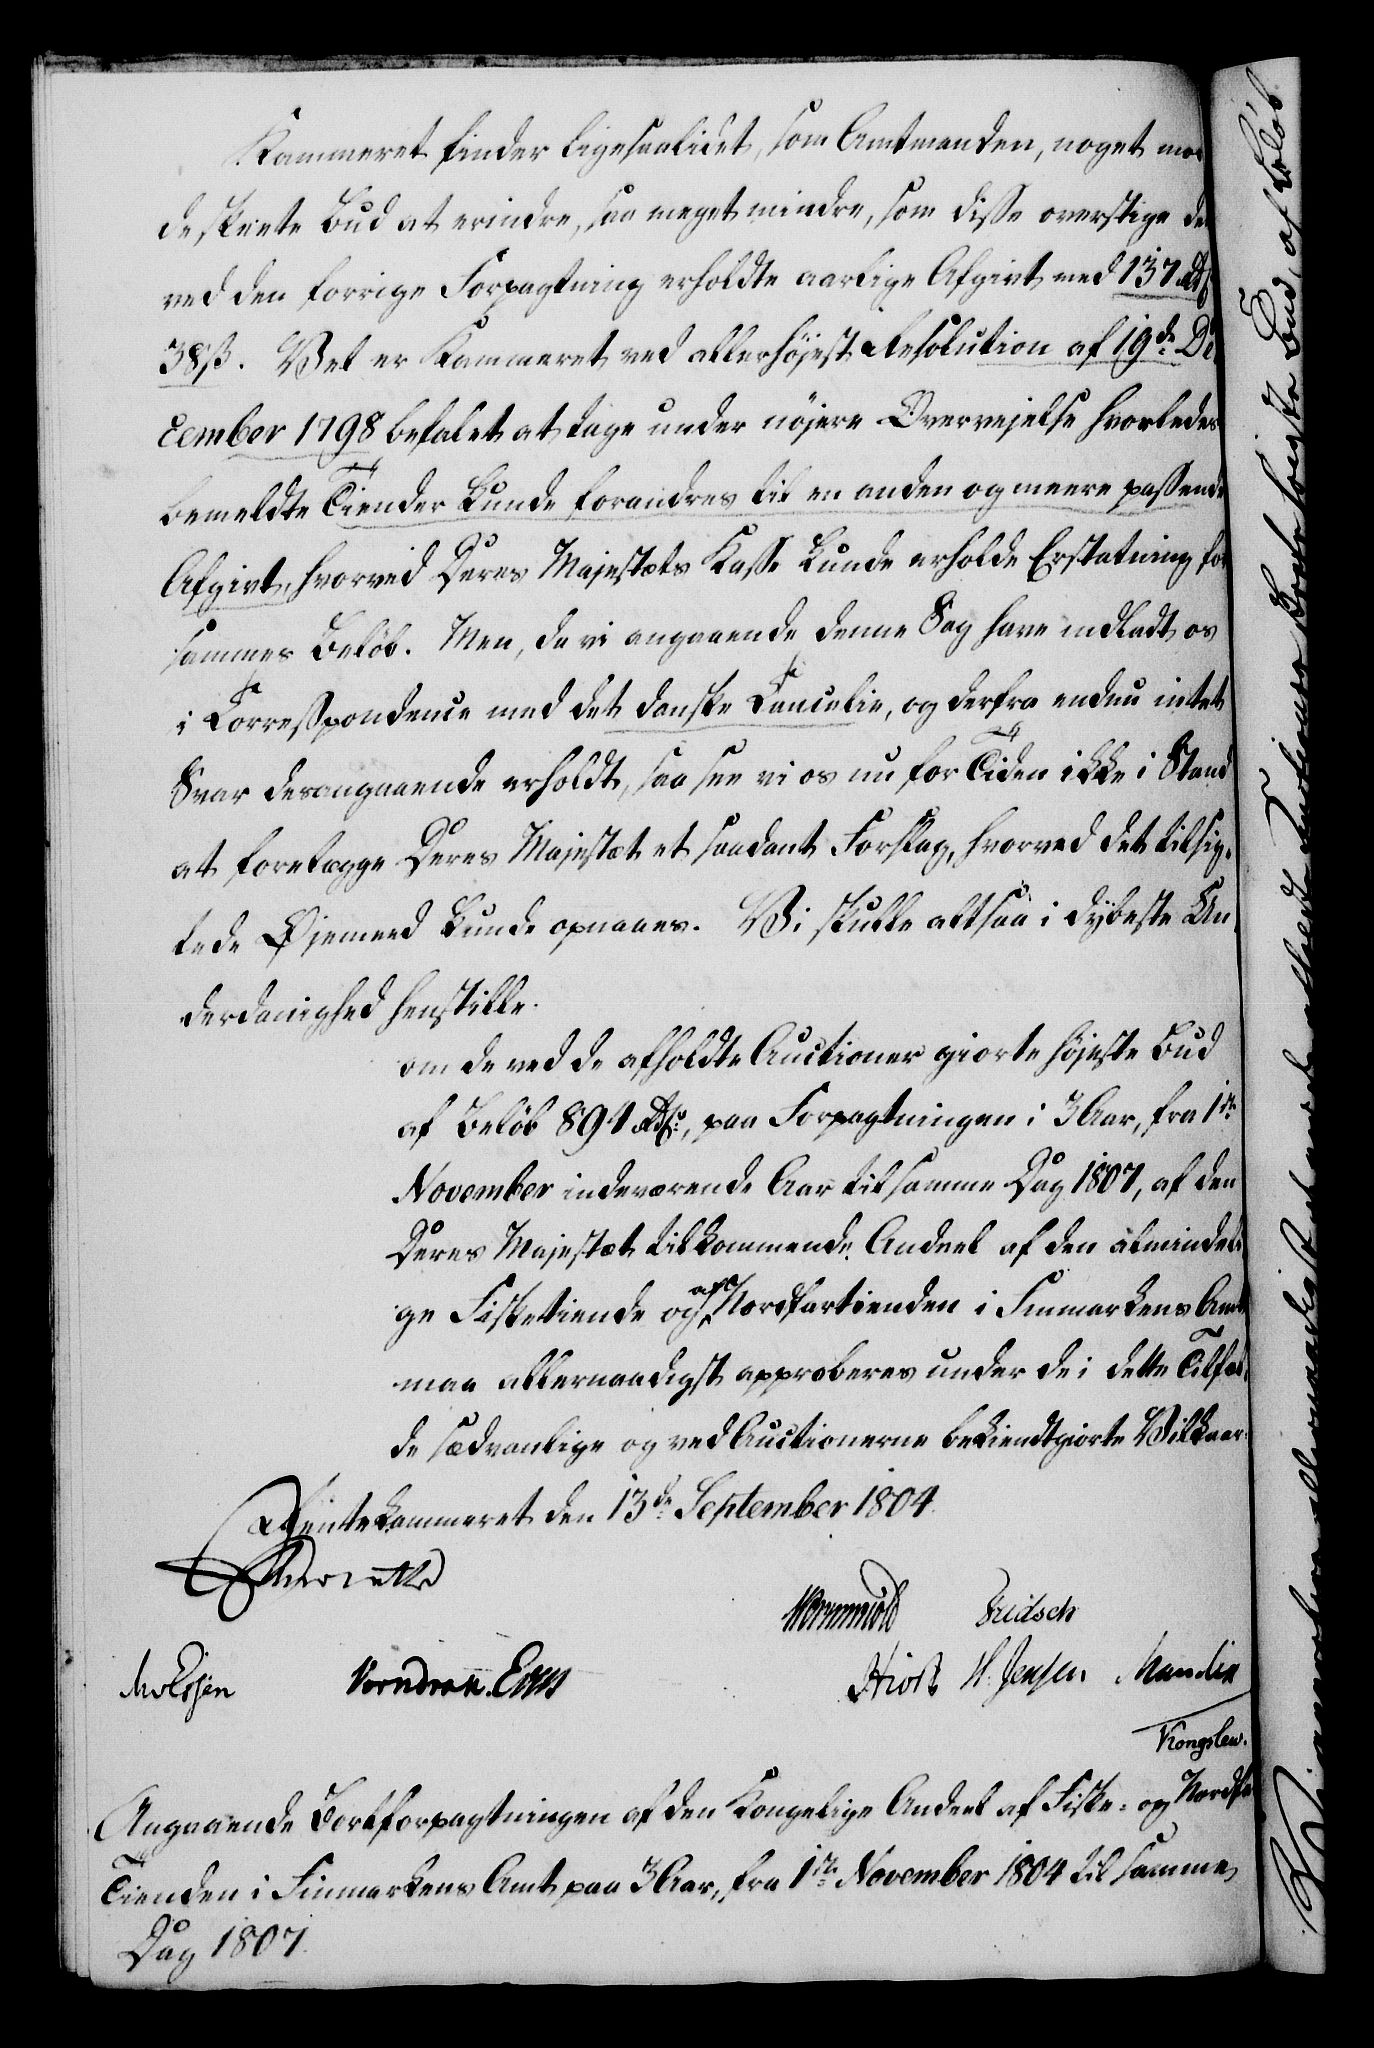 Kammeret finder ligesaalidet, som Amtmanden, noget mod
de skeete Bud at erindre, saa meget mindre, som disse overstige de
ved den forrige Forpagtning erholdte aarlige Afgivt med 137 Rd
38 ß. Vel er Kammeret ved allerhøjest Resolution af 19de De
cember 1798 befalet at tage under nøjere Overvejelse hvorledes
bemeldte Tiender kunde forandres til en anden og meere passende
Afgivt, hvorved Deres Majestæts Kasse kunde erholde Erstatning for
sammes Beløb. Men, da vi angaaende denne Sag have indladt os
i Correspondence med det danske Cancelie, og derfra endnu intet
Svar desangaaende erholdt, saa see vi os nu for Tiden ikke i Stand
at forelægge Deres Majestæt et saadant Forslag, hvorved det tilsig-
tede Øjemeed kunde opnaaes. Vi skulle altsaa i dybeste Un-
derdanighed henstille.
om de ved de afholdte Auctioner giorte højeste Bud
af Beløb 891 Rd, paa Forpagtningen i 3 Aar, fra 1ste
November indeværende Aar til samme Dag 1807, af den
Deres Majestæt tilkommende Andeel af den almindeli-
ge Fisketiende og af Nordfartienden i Finmarkens Amt
maa allernaadigst approberes under de i dette Tilfæl-
de sædvanlige og ved Auctionerne bekiendtgiorte Vilkaar.
Rentekammeret den 13de September 1804.
Wormskiold Fridsch
Hiort H. Jensen Mandix
Kongslew.
Angaaende Bortforpagtningen af den Kongelige Andeel af Fiske- og Nordfar
Tienden i Finmarkens Amt paa 3 Aar, fra 1ste November 1804 til samme
Dag 1807.